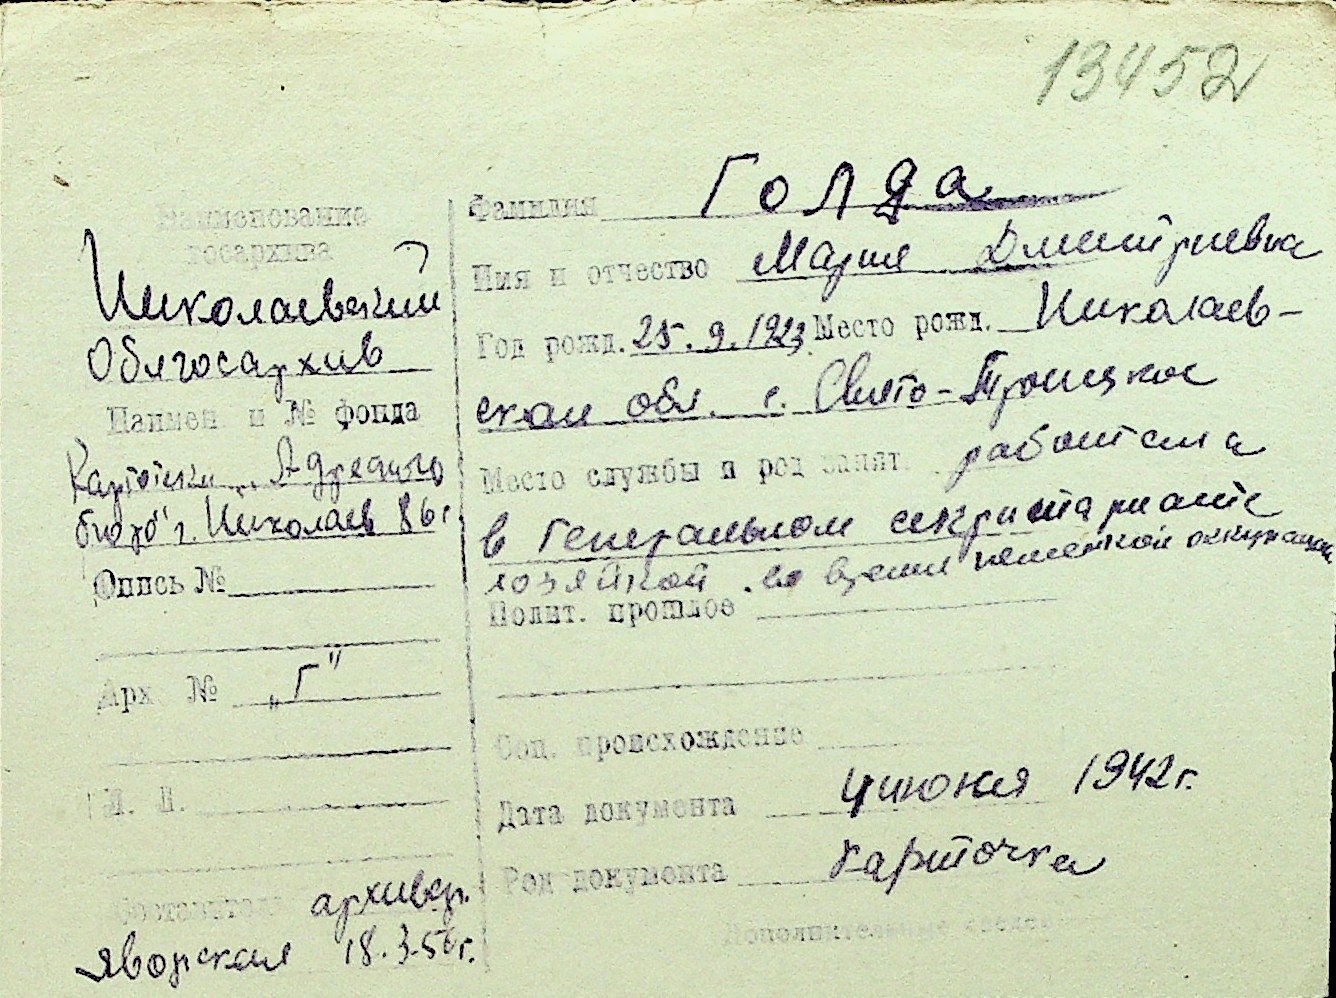 13452
Наименование
госархива
Николаевский
Облгосархив
Наимен. и № фонда
Картотеки „Адресного
бюро" г. Николаев 86 г.
Опись №
Арх. № „Г"
Л. Л.
Составитель архивар.
Яворская 18.3.56 г.
Фамилия Голда
Имя и отчество Мария Дмитриевна
Год рожд. 25.9.1923 Место рожд. Николаев-
ская обл. с. Свято-Троицкое
Место службы и род занят. работала
в Генеральном секритариате
хозяйкой во время немецкой оккупации
Полит. прошлое
Соц. происхождение
Дата документа 4 июня 1942 г.
Род документа карточка
Дополнительные сведен